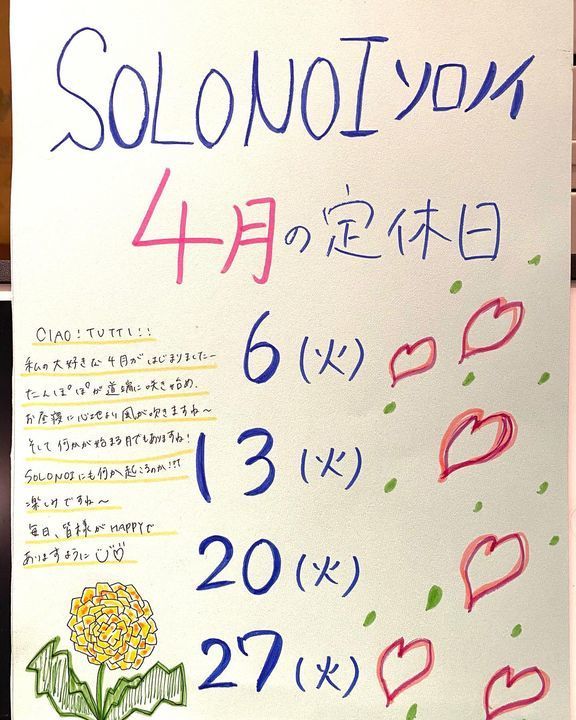 SOLONOI ソロノイ
4月の定休日
6(火)
13(火)
20(火)
27(火)
CIAO!TUTTI!!
私の大好きな4月がはじまりましたー
たんぽぽが道端に咲き始め、
お昼寝に心地よい風が吹きますね〜
そして何かが始まる月でもありますね!
SOLONOIにも何か起こるのか!??
楽しみですね〜
毎日、皆様がHAPPYで
ありますように